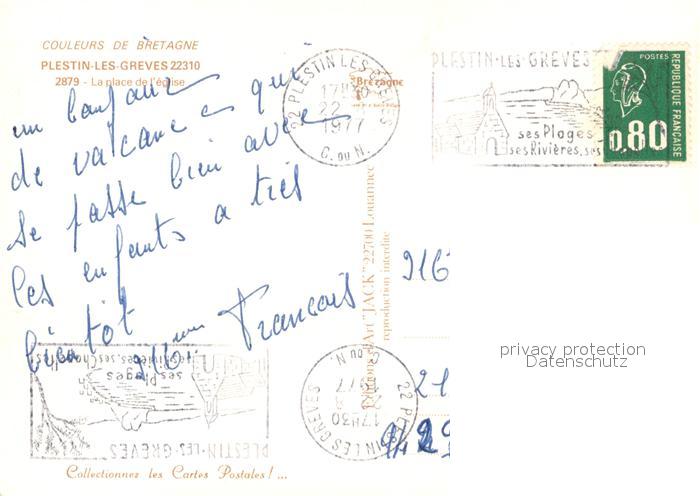 COULEURS DE BRETAGNE
PLESTIN-LES-GREVES 22310
2879 - La place de l'église
22 PLESTIN LES GREVES
17H30
22 - 
1977
C. DU N.
Bretagne
PLESTIN-LES-GREVES
ses Plages
ses Rivières, ses
POSTES
REPUBLIQUE FRANÇAISE
0,80
un bonjour
de vacances qui
se passe bien avec
les enfants a tres
bientot
François
Editions d'Art "JACK" 22700 Louannec
reproduction interdite
916
21
privacy protection
Datenschutz
22 PLESTIN LES GREVES
17H30
1977
C. DU N.
PLESTIN-LES-GREVES
ses Plages
ses Rivières, ses
Collectionnez les Cartes Postales! ...